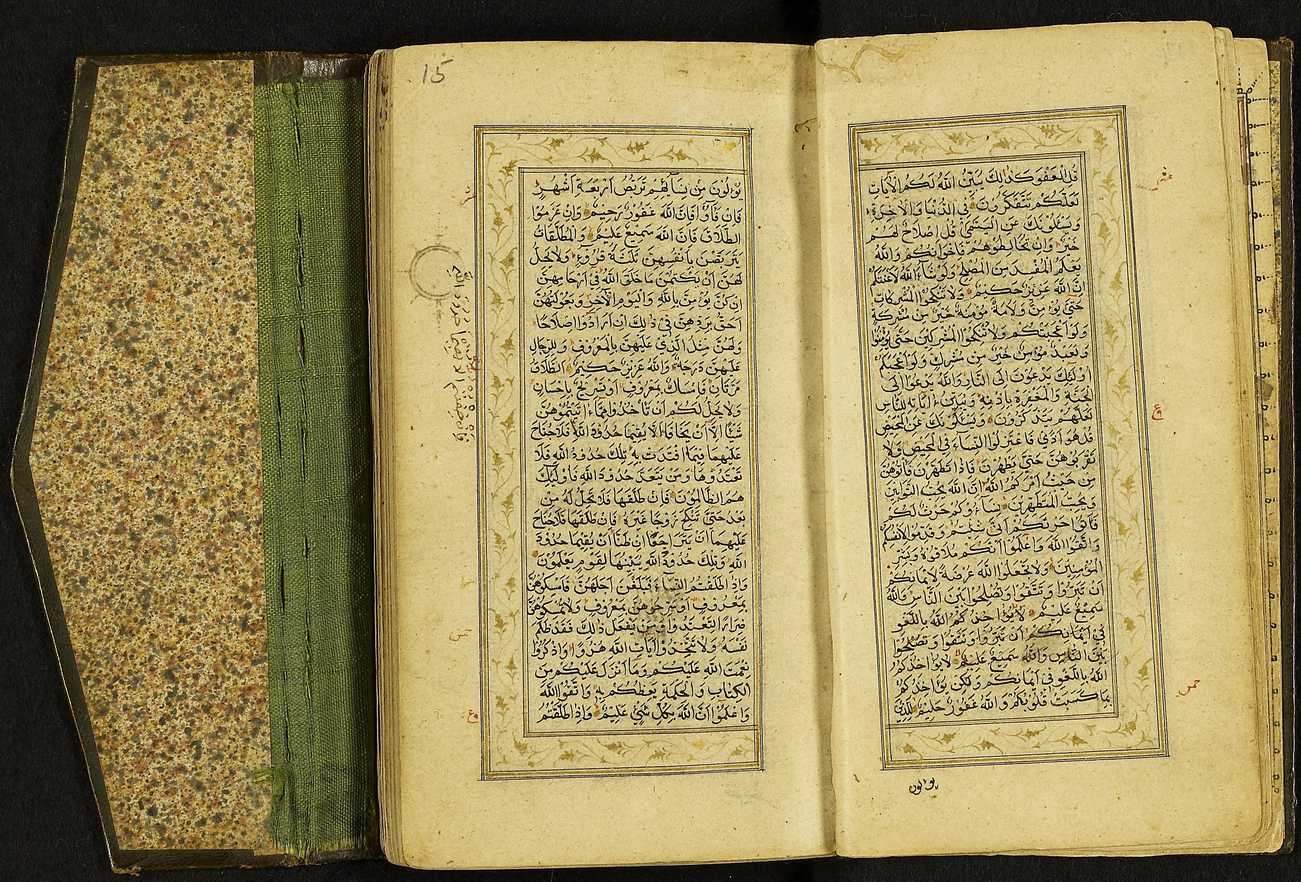 قُلِ الْعَفْوَ كَذٰلِكَ يُبَيِّنُ اللّٰهُ لَكُمُ الْاٰيَاتِ
لَعَلَّكُمْ تَتَفَكَّرُونَ فِي الدُّنْيَا وَالْاٰخِرَةِ
وَيَسْئَلُونَكَ عَنِ الْيَتٰمٰى قُلْ اِصْلَاحٌ لَهُمْ
خَيْرٌ وَاِنْ تُخَالِطُوهُمْ فَاِخْوَانُكُمْ وَاللّٰهُ
يَعْلَمُ الْمُفْسِدَ مِنَ الْمُصْلِحِ وَلَوْ شَاءَ اللّٰهُ لَاَعْنَتَكُمْ
اِنَّ اللّٰهَ عَزِيزٌ حَكِيمٌ وَلَا تَنْكِحُوا الْمُشْرِكَاتِ
حَتّٰى يُؤْمِنَّ وَلَاَمَةٌ مُؤْمِنَةٌ خَيْرٌ مِنْ مُشْرِكَةٍ
وَلَوْ اَعْجَبَتْكُمْ وَلَا تُنْكِحُوا الْمُشْرِكِينَ حَتّٰى يُؤْمِنُوا
وَلَعَبْدٌ مُؤْمِنٌ خَيْرٌ مِنْ مُشْرِكٍ وَلَوْ اَعْجَبَكُمْ
اُولٰئِكَ يَدْعُونَ اِلَى النَّارِ وَاللّٰهُ يَدْعُوا اِلَى
الْجَنَّةِ وَالْمَغْفِرَةِ بِاِذْنِهِ وَيُبَيِّنُ اٰيَاتِهِ لِلنَّاسِ
لَعَلَّهُمْ يَتَذَكَّرُونَ وَيَسْئَلُونَكَ عَنِ الْمَحِيضِ
قُلْ هُوَ اَذًى فَاعْتَزِلُوا النِّسَاءَ فِي الْمَحِيضِ وَلَا
تَقْرَبُوهُنَّ حَتّٰى يَطْهُرْنَ فَاِذَا تَطَهَّرْنَ فَأْتُوهُنَّ
مِنْ حَيْثُ اَمَرَكُمُ اللّٰهُ اِنَّ اللّٰهَ يُحِبُّ التَّوَّابِينَ
وَيُحِبُّ الْمُتَطَهِّرِينَ نِسَاؤُكُمْ حَرْثٌ لَكُمْ
فَأْتُوا حَرْثَكُمْ اَنّٰى شِئْتُمْ وَقَدِّمُوا لِاَنْفُسِكُمْ
وَاتَّقُوا اللّٰهَ وَاعْلَمُوا اَنَّكُمْ مُلَاقُوهُ وَبَشِّرِ
الْمُؤْمِنِينَ وَلَا تَجْعَلُوا اللّٰهَ عُرْضَةً لِاَيْمَانِكُمْ
اَنْ تَبَرُّوا وَتَتَّقُوا وَتُصْلِحُوا بَيْنَ النَّاسِ وَاللّٰهُ
سَمِيعٌ عَلِيمٌ لَا يُؤَاخِذُكُمُ اللّٰهُ بِاللَّغْوِ
فِي اَيْمَانِكُمْ اَنْ تَبَرُّوا وَتَتَّقُوا وَتُصْلِحُوا
بَيْنَ النَّاسِ وَاللّٰهُ سَمِيعٌ عَلِيمٌ لَا يُؤَاخِذُكُمُ
اللّٰهُ بِاللَّغْوِ فِي اَيْمَانِكُمْ وَلٰكِنْ يُؤَاخِذُكُمْ
بِمَا كَسَبَتْ قُلُوبُكُمْ وَاللّٰهُ غَفُورٌ حَلِيمٌ لِلَّذِينَ
يؤلون
ع
خمس
15
يُؤْلُونَ مِنْ نِسَائِهِمْ تَرَبُّصُ اَرْبَعَةِ اَشْهُرٍ
فَاِنْ فَاؤُا فَاِنَّ اللّٰهَ غَفُورٌ رَحِيمٌ وَاِنْ عَزَمُوا
الطَّلَاقَ فَاِنَّ اللّٰهَ سَمِيعٌ عَلِيمٌ وَالْمُطَلَّقَاتُ
يَتَرَبَّصْنَ بِاَنْفُسِهِنَّ ثَلٰثَةَ قُرُوءٍ وَلَا يَحِلُّ
لَهُنَّ اَنْ يَكْتُمْنَ مَا خَلَقَ اللّٰهُ فِي اَرْحَامِهِنَّ
اِنْ كُنَّ يُؤْمِنَّ بِاللّٰهِ وَالْيَوْمِ الْاٰخِرِ وَبُعُولَتُهُنَّ
اَحَقُّ بِرَدِّهِنَّ فِي ذٰلِكَ اِنْ اَرَادُوا اِصْلَاحًا
وَلَهُنَّ مِثْلُ الَّذِي عَلَيْهِنَّ بِالْمَعْرُوفِ وَلِلرِّجَالِ
عَلَيْهِنَّ دَرَجَةٌ وَاللّٰهُ عَزِيزٌ حَكِيمٌ اَلطَّلَاقُ
مَرَّتَانِ فَاِمْسَاكٌ بِمَعْرُوفٍ اَوْ تَسْرِيحٌ بِاِحْسَانٍ
وَلَا يَحِلُّ لَكُمْ اَنْ تَأْخُذُوا مِمَّا اٰتَيْتُمُوهُنَّ
شَيْئًا اِلَّا اَنْ يَخَافَا اَلَّا يُقِيمَا حُدُودَ اللّٰهِ فَلَا جُنَاحَ
عَلَيْهِمَا فِيمَا افْتَدَتْ بِهِ تِلْكَ حُدُودُ اللّٰهِ فَلَا
تَعْتَدُوهَا وَمَنْ يَتَعَدَّ حُدُودَ اللّٰهِ فَاُولٰئِكَ
هُمُ الظَّالِمُونَ فَاِنْ طَلَّقَهَا فَلَا تَحِلُّ لَهُ مِنْ
بَعْدُ حَتّٰى تَنْكِحَ زَوْجًا غَيْرَهُ فَاِنْ طَلَّقَهَا فَلَا جُنَاحَ
عَلَيْهِمَا اَنْ يَتَرَاجَعَا اِنْ ظَنَّا اَنْ يُقِيمَا حُدُودَ
اللّٰهِ وَتِلْكَ حُدُودُ اللّٰهِ يُبَيِّنُهَا لِقَوْمٍ يَعْلَمُونَ
وَاِذَا طَلَّقْتُمُ النِّسَاءَ فَبَلَغْنَ اَجَلَهُنَّ فَاَمْسِكُوهُنَّ
بِمَعْرُوفٍ اَوْ سَرِّحُوهُنَّ بِمَعْرُوفٍ وَلَا تُمْسِكُوهُنَّ
ضِرَارًا لِتَعْتَدُوا وَمَنْ يَفْعَلْ ذٰلِكَ فَقَدْ ظَلَمَ
نَفْسَهُ وَلَا تَتَّخِذُوا اٰيَاتِ اللّٰهِ هُزُوًا وَاذْكُرُوا
نِعْمَتَ اللّٰهِ عَلَيْكُمْ وَمَا اَنْزَلَ عَلَيْكُمْ مِنَ
الْكِتَابِ وَالْحِكْمَةِ يَعِظُكُمْ بِهِ وَاتَّقُوا اللّٰهَ
وَاعْلَمُوا اَنَّ اللّٰهَ بِكُلِّ شَيْءٍ عَلِيمٌ وَاِذَا طَلَّقْتُمُ
ع